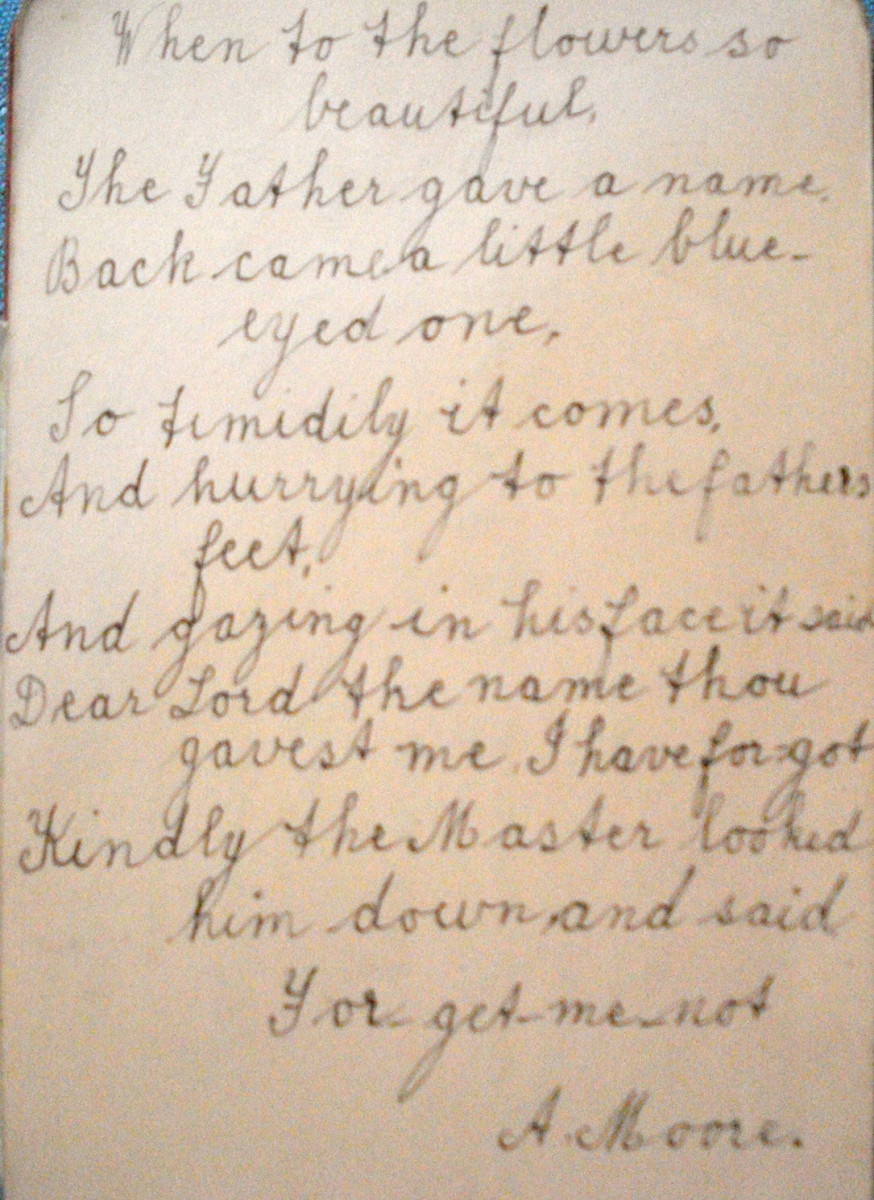 When to the flowers so
beautiful,
The Father gave a name.
Back came a little blue-
eyed one,
So timidily it comes,
And hurrying to the fathers
feet,
And gazing in his face it said
Dear Lord the name thou
gavest me I have for=got
Kindly the Master looked
him down, and said
For-get-me-not
A. Moore.